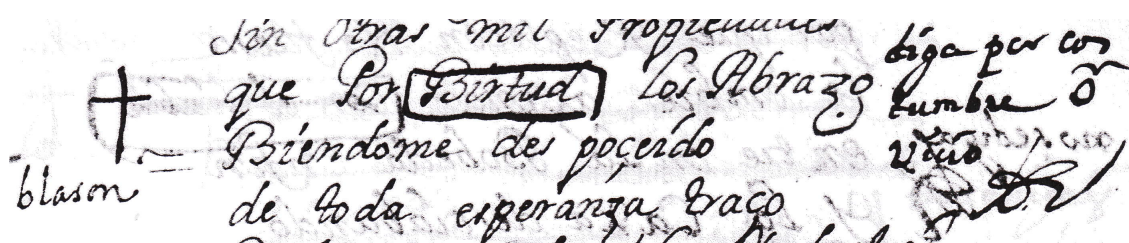 Sin otras mil Propiedades
que Por Birtud los Abrazo
Biendome des poçeido
de toda esperanza traço
diga por cos
tumbre õ
viçio
blason